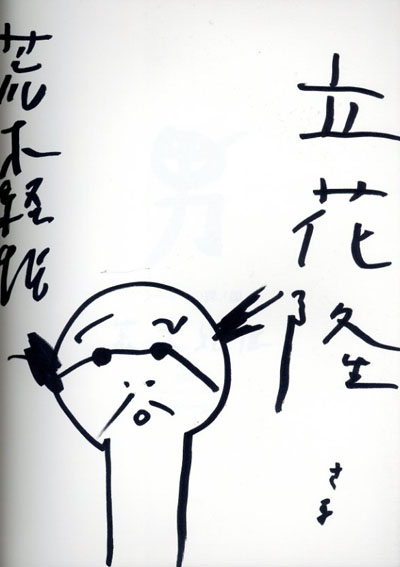 立花隆
さま
男
荒木経惟